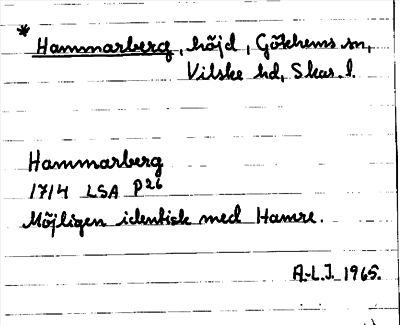 * Hammarberg, höjd, Gökhems sn,
Vilske hd, Skar. l.
Hammarberg
1714 LSA P26
Möjligen identisk med Hamre.
A.-L.J. 1965.